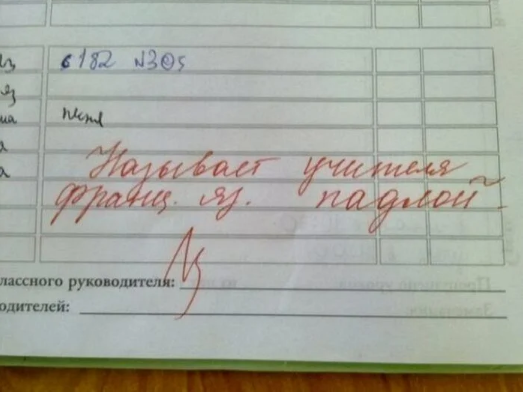 с182 №305
яз
песня
Называет учителя
франц. яз. падлой!
лассного руководителя:
одителей: